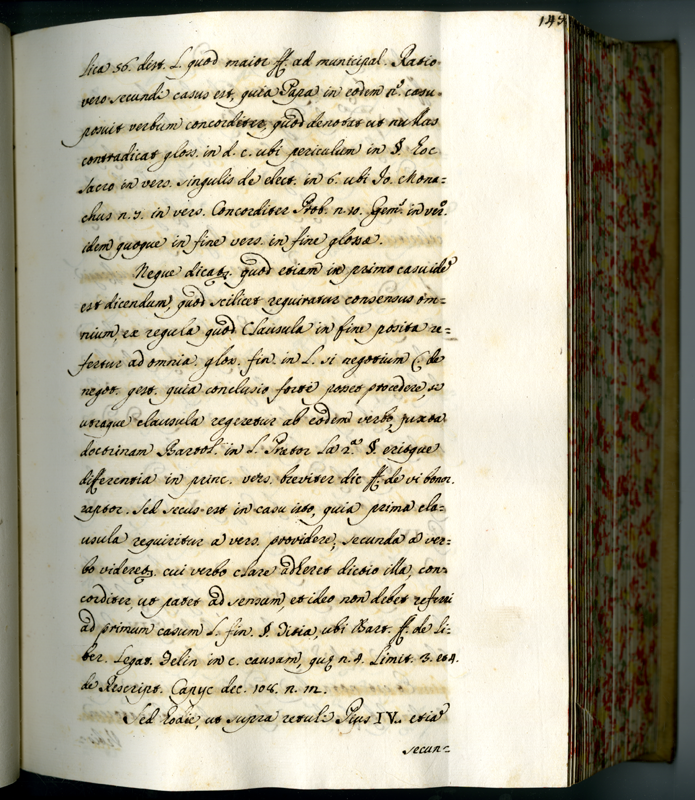 143
lica 56. dist. L. quod maior ff. ad municipal. Ratio
vero secundi casus est, quia Papa in eodem n.º casu
posuit verbum concorditer, quod denotat ut nullus
contradicat glos. in d. c. ubi periculum in §. Hoc
sacro in vers. singulis de elect. in 6. ubi Jo. Mona=
chus n. 7. in vers. Concorditer Prob. n. 10. Gem. in ver.
idem quoque in fine vers. in fine glossa.
Neque dicatz. quod etiam in primo casu idẽ
est dicendum, quod scilicet requiratur consensus om=
nium ex regula quod Clausula in fine posita re=
fertur ad omnia glos. fin. in L. si negotium C. de
negot. gest. quia conclusio forte posset procedere, si
utraque clausula regeretur ab eodem verbo, juxta
doctrinam Bartol. in L. Prætor la 2.ª §. eritque
differentia in princ. vers. breviter dic ff. de vi bonor.
raptor. Sed secus est in casu isto, quia prima cla=
usula requiritur a vers. providere, secunda a ver=
bo videretz. cui verbo clare adheret dictio illa, con=
corditer, ut patet ad sensum et ideo non debet referri
ad primum casum L. fin. §. Titia, ubi Bart. ff. de Li=
ber. Legat. Delin in c. causam, quæ n. 4. Limit. 3. et 4.
de Rescript. Capyc dec. 108. n. 12.
Sed hodie, ut supra retuli Pius IV. etiã
secun=